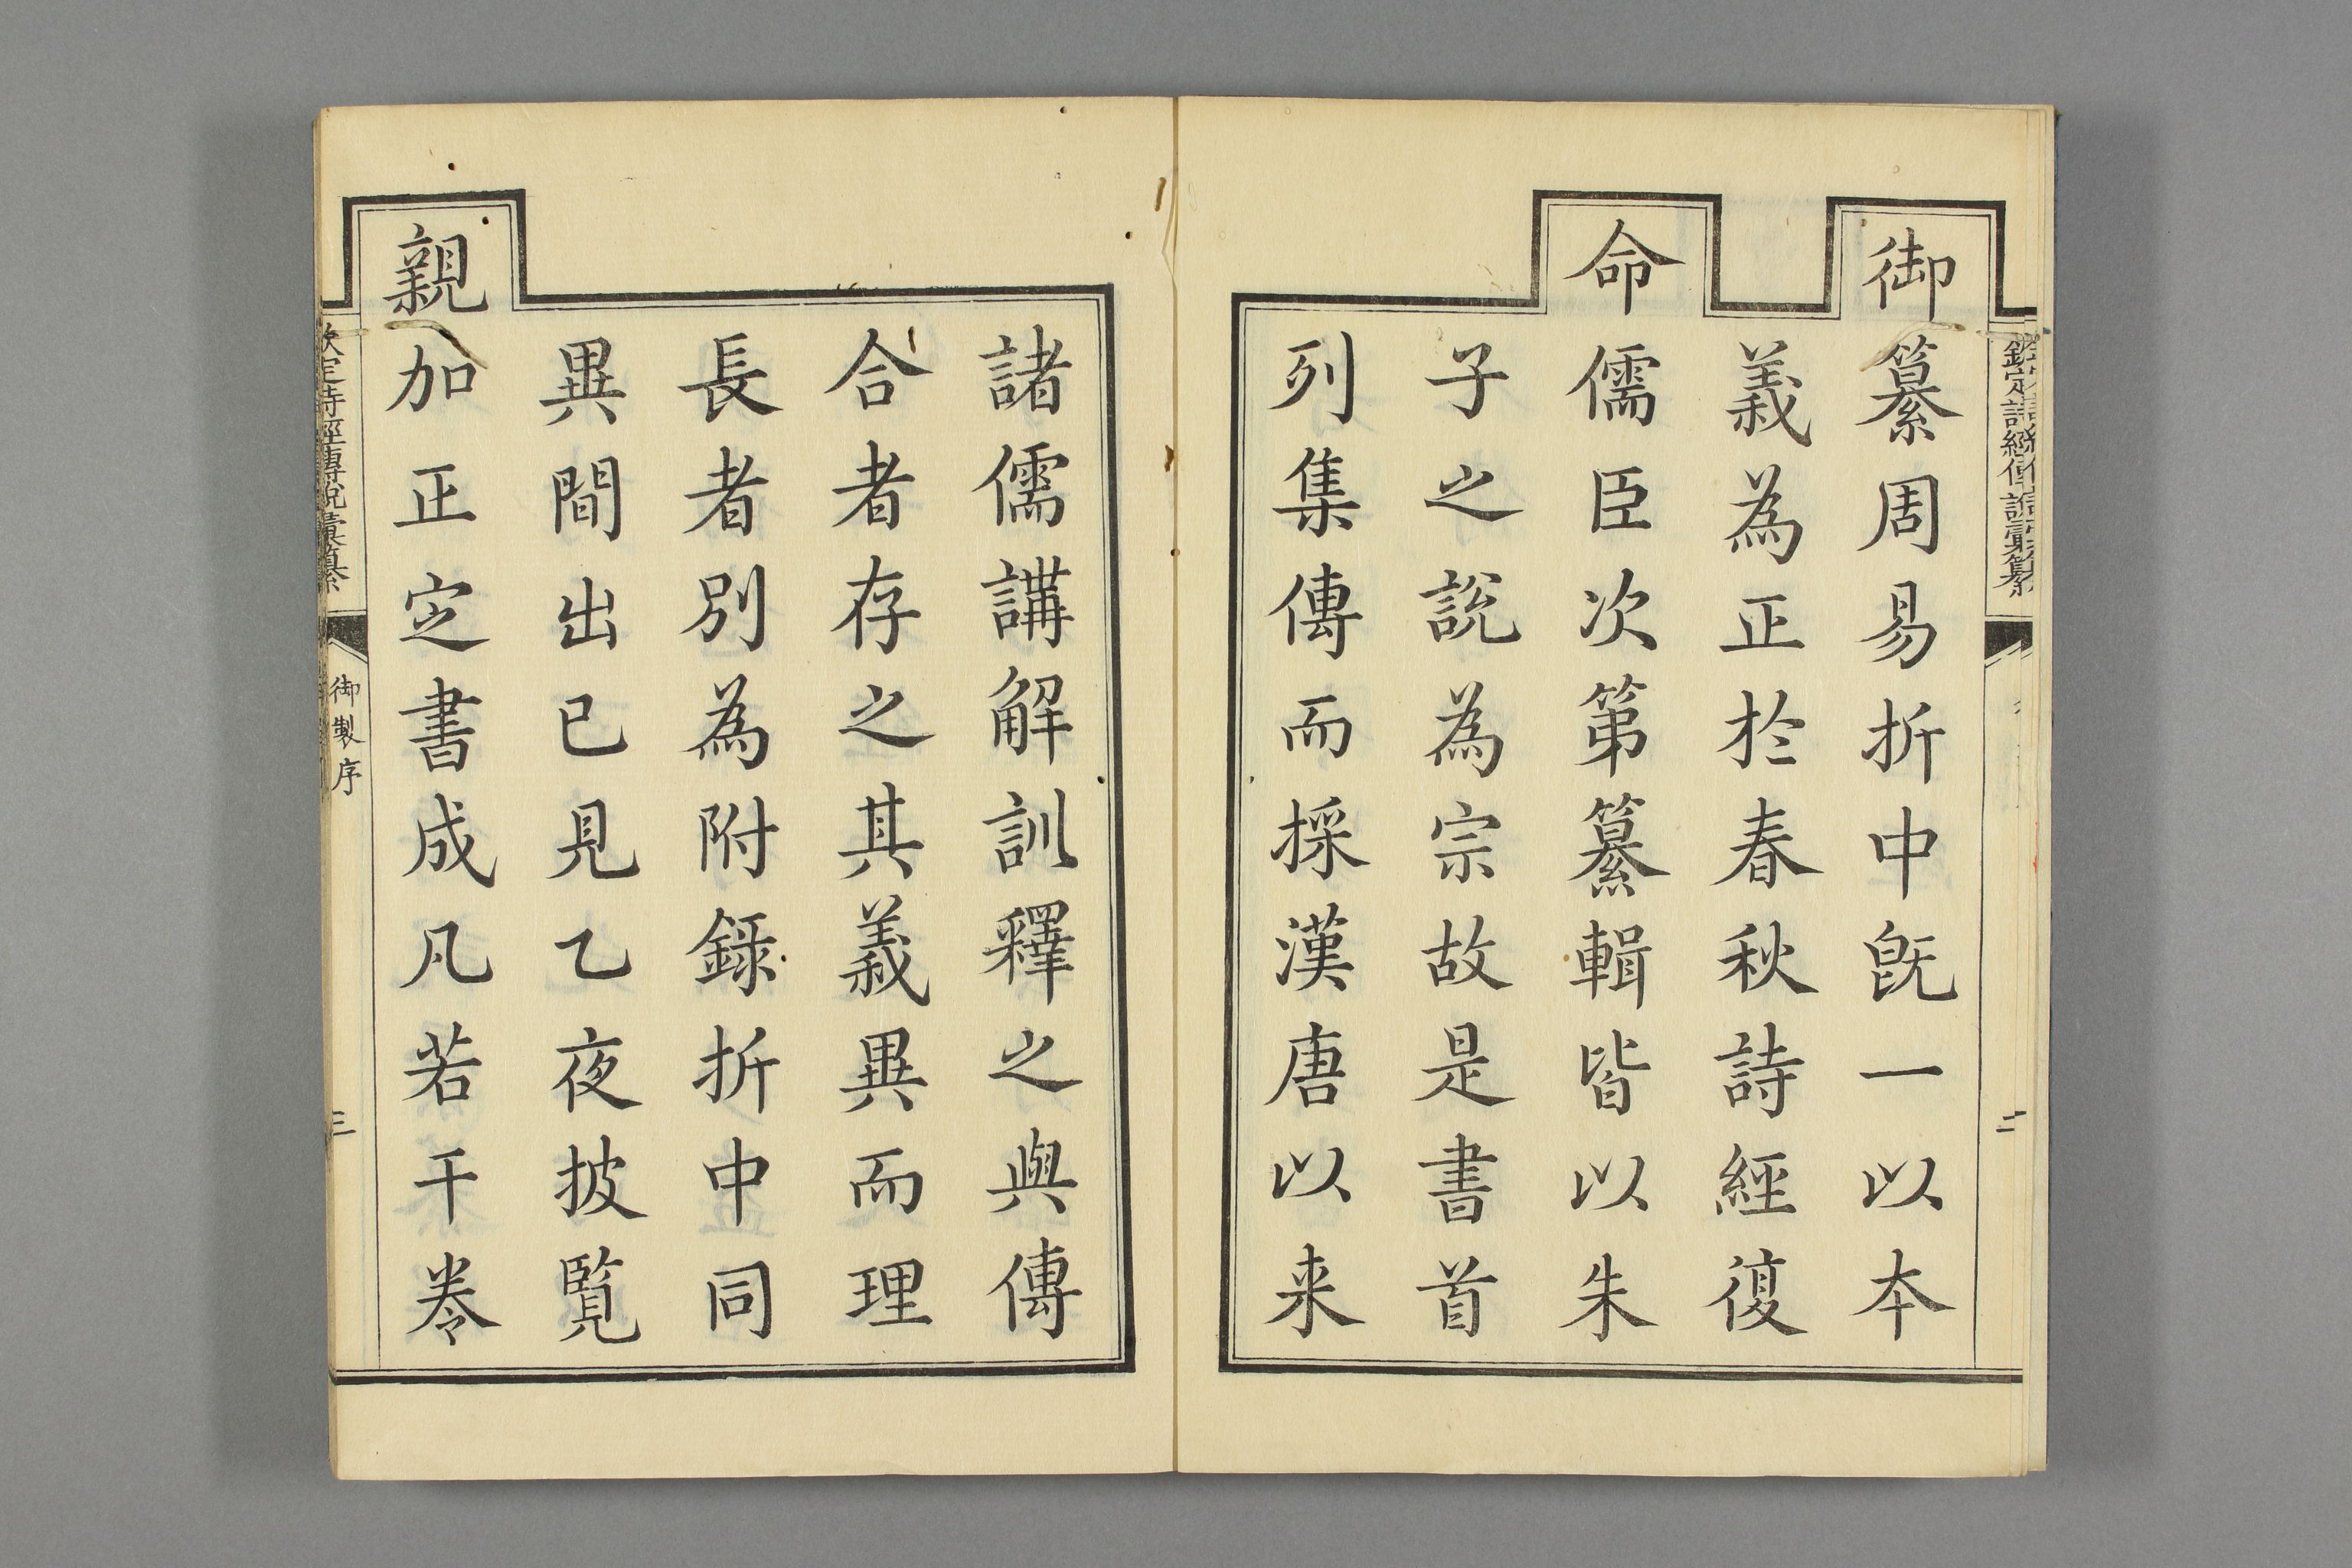 御纂周易折中旣一以本
義為正於春秋詩經復
命儒臣次第纂輯皆以朱
子之說為宗故是書首
列集傳而採漢唐以来
諸儒講解訓釋之與傳
合者存之其義異而理
長者別為附錄折中同
異間出已見乙夜披覧
親加正定書成凡若干卷
欽定詩經傳說彙纂
御製序
三
欽定詩經傳說彙纂
二